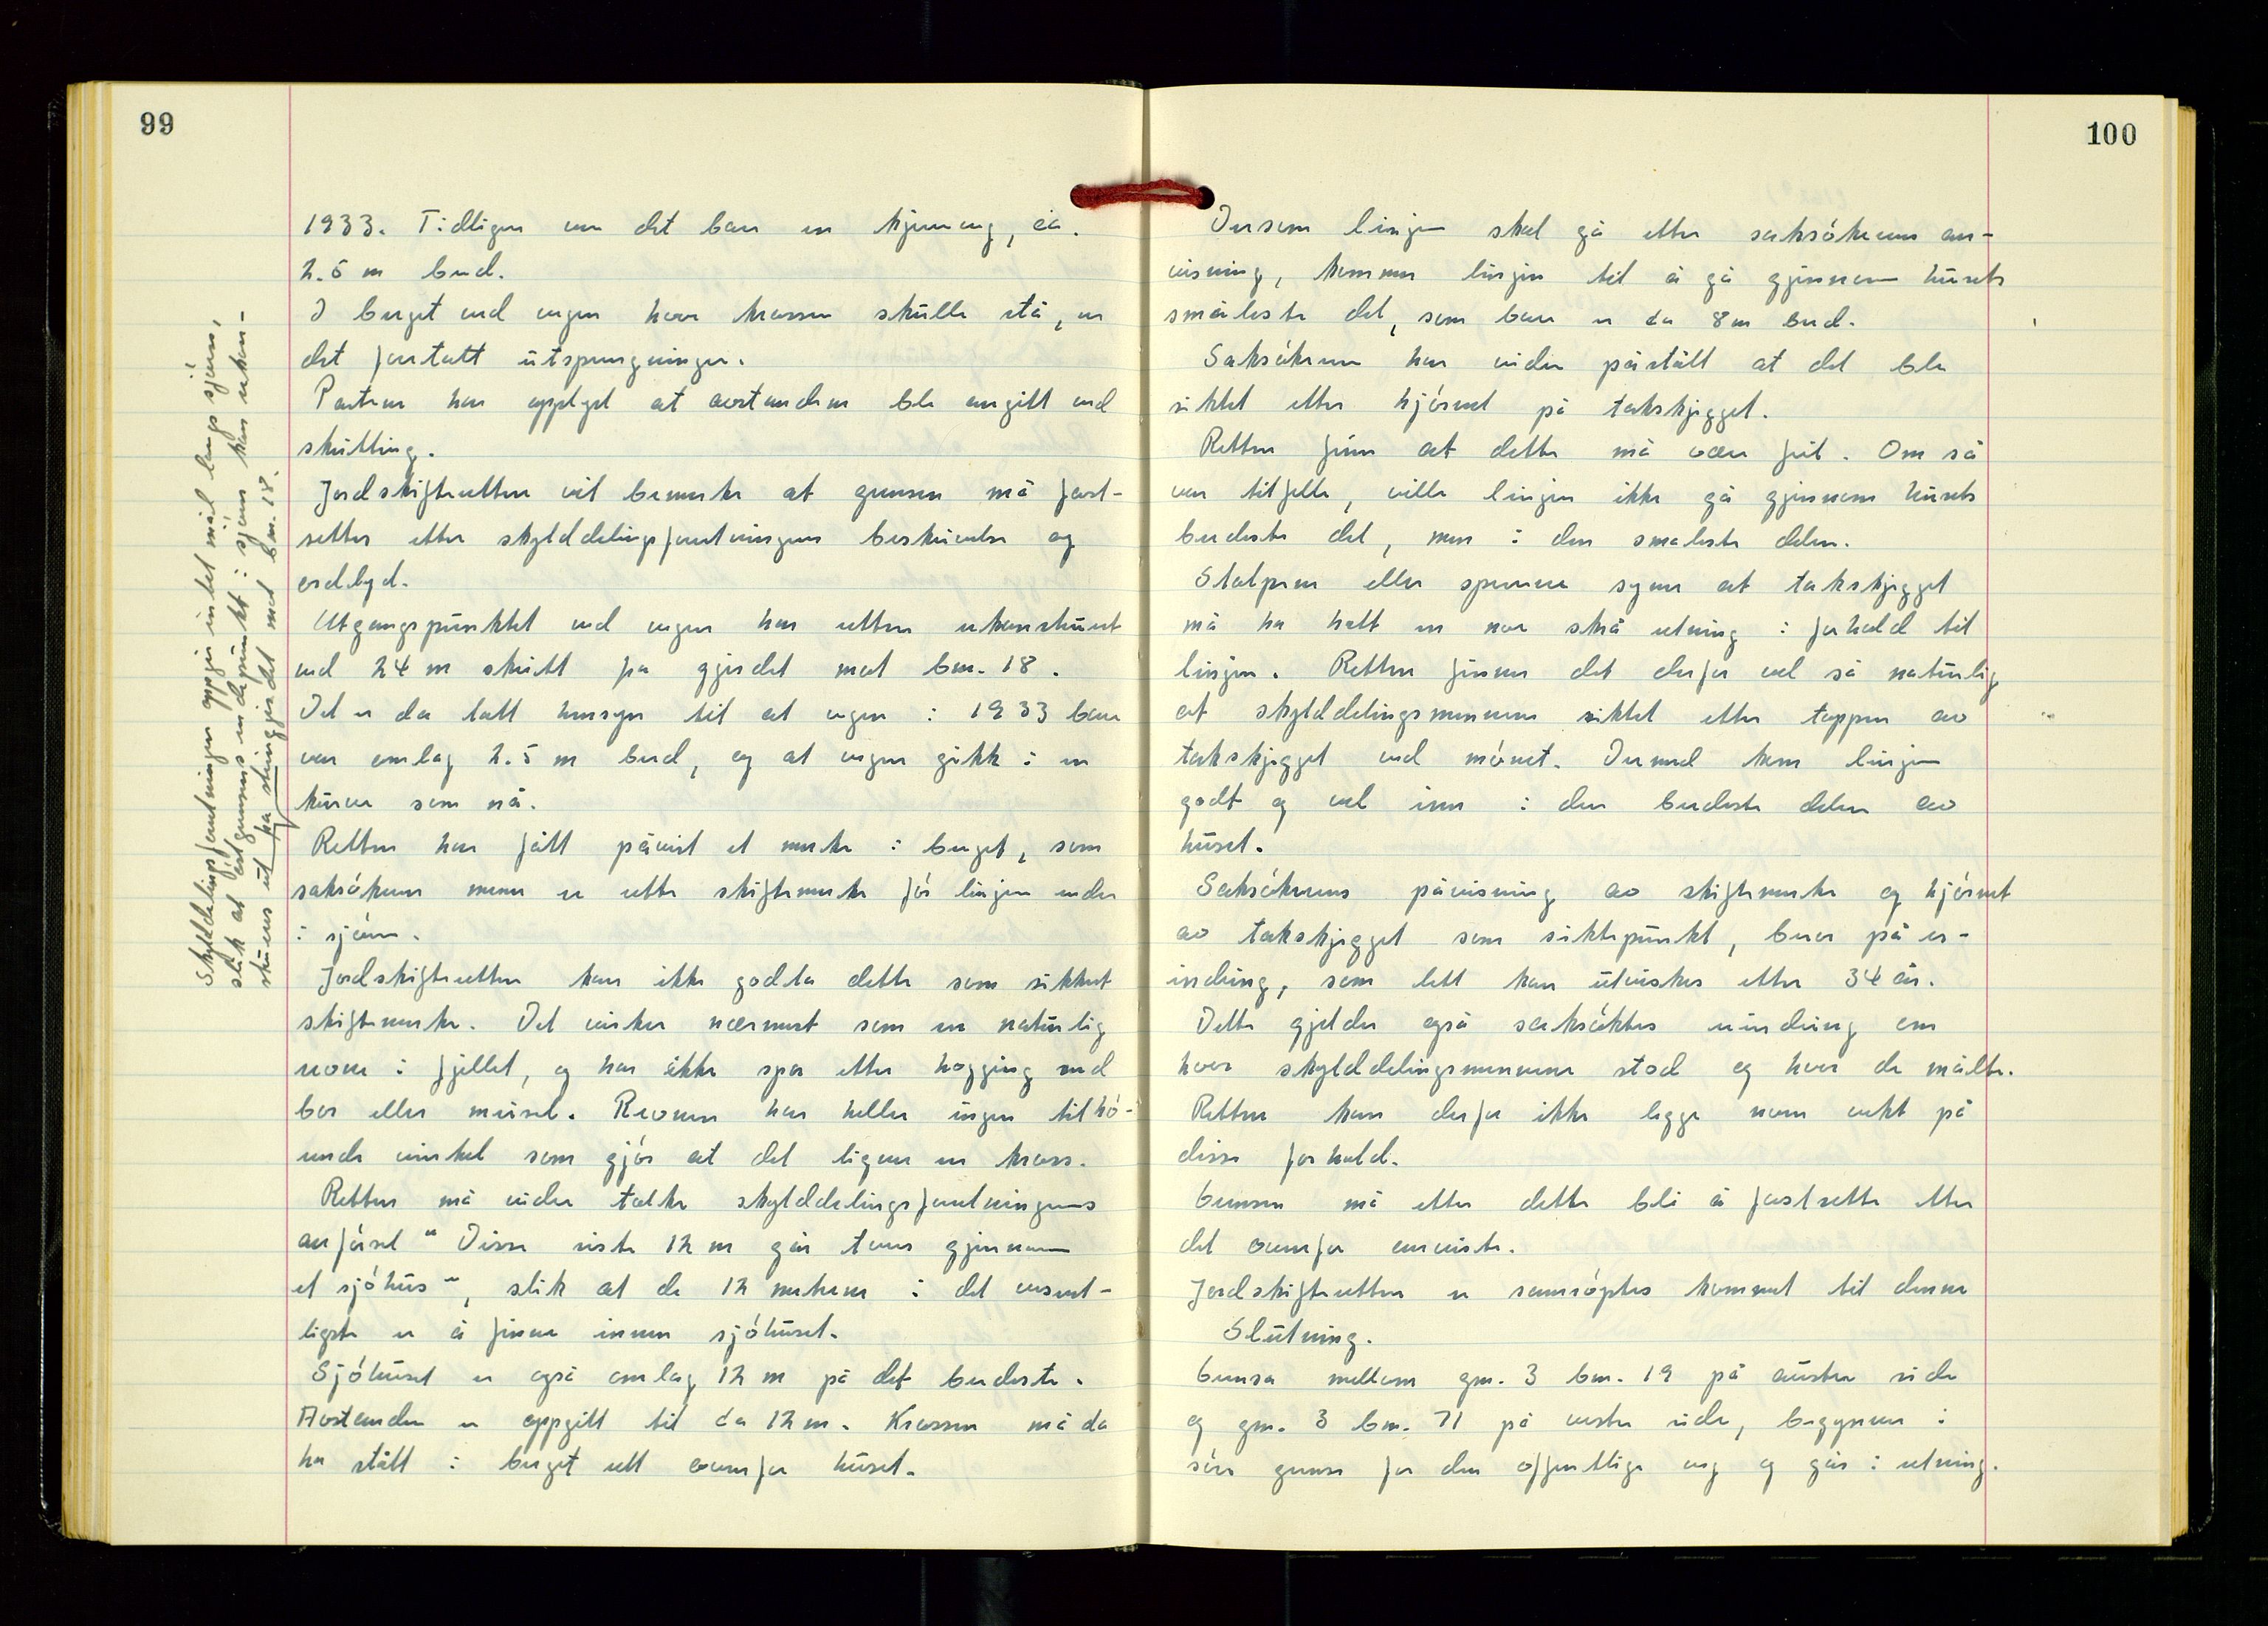 99
1933. Tidligere var det bare en kjerreveg, ca.
2.5 m bred.
I berget ved vegen hvor krossen skulle stå, er
det foretatt utsprengninger.
Partene har opplyst at avstandene ble angitt ved
skritting.
Jordskifteretten vil bemerke at grensen må fast-
settes etter skylddelingsforretningens beskrivelse og
ordlyd.
Utgangspunktet ved vegen har retten rekonstruert
ved 24 m skritt fra gjerdet mot bnr. 18.
Det er da tatt hensyn til at vegen i 1933 bare
var omlag 2.5 m bred, og at vegen gikk i en
kurve som nå.
Retten har fått påvist et merke i berget, som
saksøkerne mener er rette skiftemerke før linjen ender
i sjøen.
Jordskifteretten kan ikke godta dette som sikkert
skiftemerke. Det virker nærmest som en naturlig
revne i fjellet, og har ikke spor etter hogging med
bor eller meisel. Revnen har heller ingen tilhö-
rende vinkel som gjør at det ligner en kross.
Retten må videre tolke skylddelingsforretningens
anførsel " Disse siste 12 m går tvers gjennom
et sjøhus", slik at de 12 meterne i det vesent-
ligste er å finne innen sjøhuset.
Sjøhuset er også omlag 12 m på det bredeste.
Avstanden er oppgitt til ca 12 m. Krossen må da
ha stått i berget rett ovenfor huset.
Skylddelingsforretningen oppgir intet mål langs sjøen,
slik at grensens endepunkt i sjøen kan rekon-
strueres ut fra steingjerdet mot bnr. 18.
100
Dersom linjen skal gå etter saksøkerens an-
visning, kommer linjen til å gå gjennom husets
smaleste del, som bare er ca 8 m bred.
Saksøkerne har videre påstått at det ble
siktet etter hjørnet på takskjegget.
Retten finner at dette må være feil. Om så
var tilfelle, ville linjen ikke gå gjennom husets
bredeste del, men i den smaleste delen.
Stolpene eller sperrene syner at takskjegget
må ha hatt en noe skrå retning i forhold til
linjen. Retten finner det derfor vel så naturlig
at skylddelingsmennene siktet etter toppen av
takskjegget ved mønet. Dermed kom linjen
godt og vel inn i den bredeste delen av
huset.
Saksøkerens påvisning av skiftemerke og hjørnet
av takskjegget som siktepunkt, beror på er-
indring, som lett kan utviskes etter 34 år.
Dette gjelder også saksøktes erindring om
hvor skylddelingsmennene stod og hvor de målte.
Retten kan derfor ikke legge noen vekt på
disse forhold.
Grensen må etter dette bli å fastsette etter
det ovenfor anviste.
Jordskifteretten er samrøystes kommet til denne
Slutning.
Grensa mellom gnr. 3 bnr. 19 på austre side
og gnr. 3 bnr. 71 på vestre side, begynner i
søre grense for den offentlige veg og går i retning.